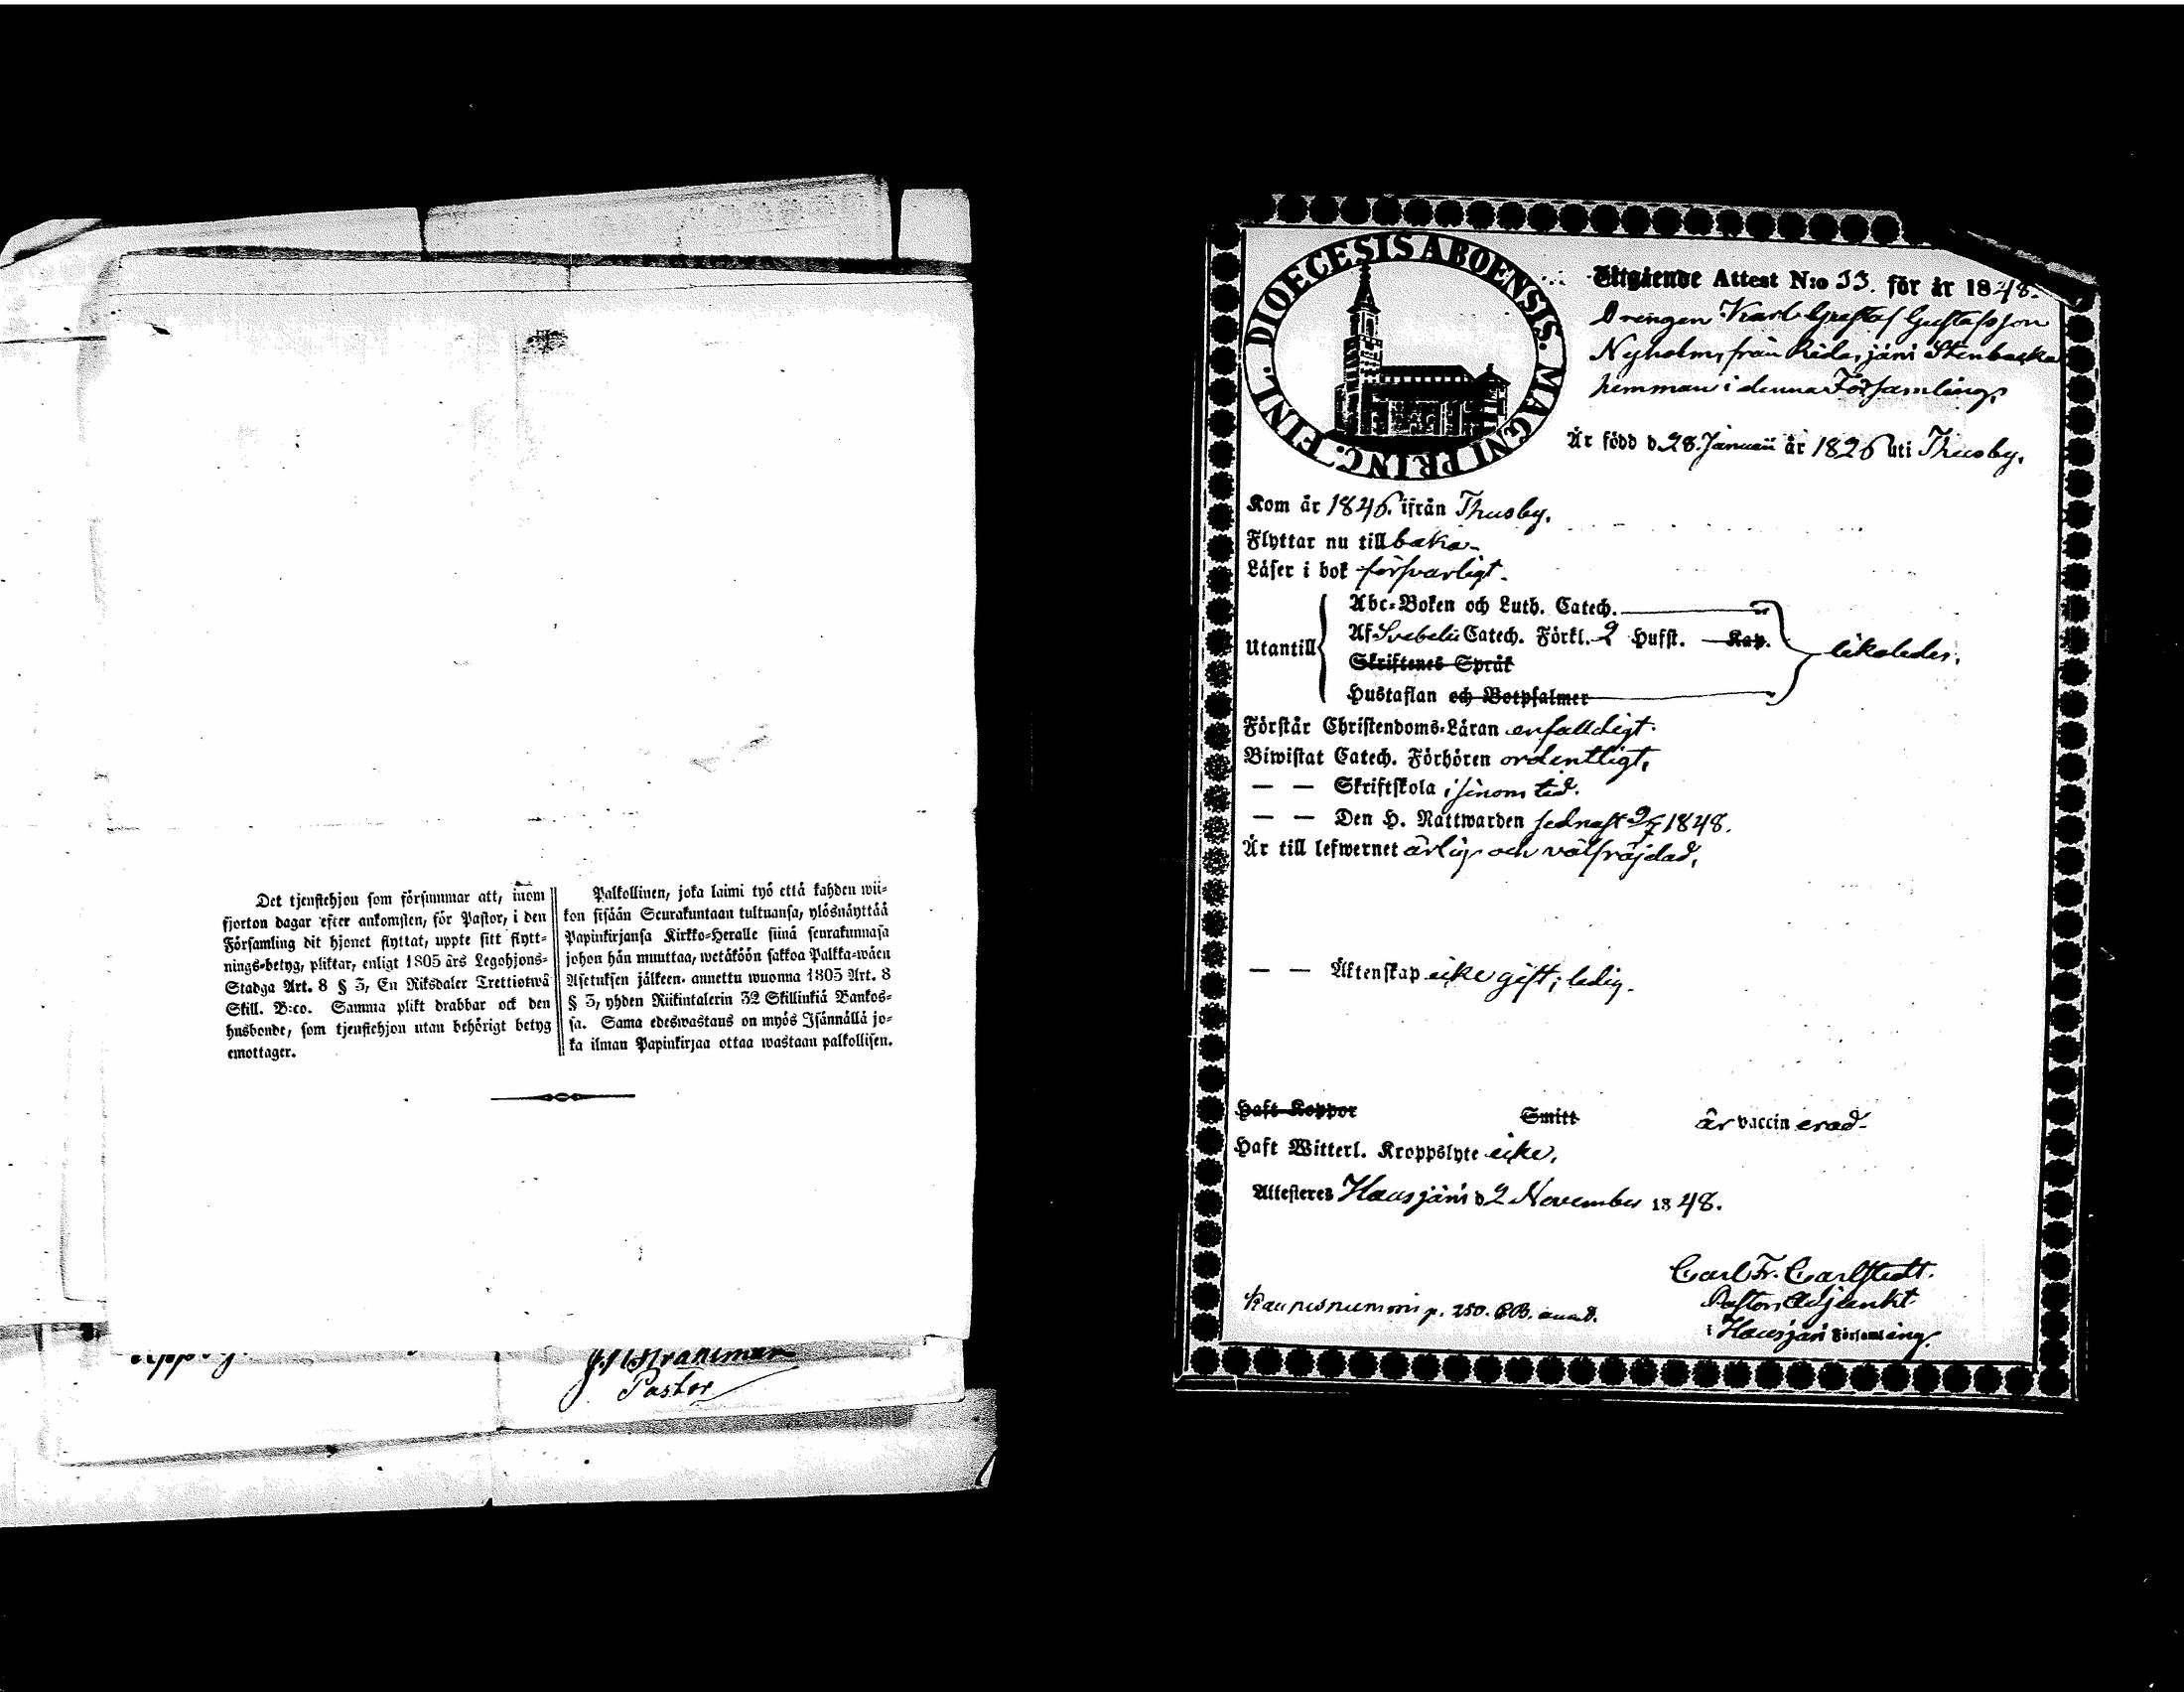 Det tjenstehjon som försummar att, inom
fjorton dagar efter ankomsten, för Pastor, i den
Församling dit hjonet flyttat, uppte sitt flytt-
nings-betyg, pliktar, enligt 1805 års Legohjons-
Stadga Art. 8 § 3, En Riksdaler Trettiotwå
Skill. B:co. Samma plikt drabbar ock den
husbonde, som tjenstehjon utan behörigt betyg
emottager.
Palkollinen, joka laimi tyó että kahden wii-
kon sisään Seurakuntaan tultuansa, ylösnäyttää
Papinkirjansa Kirkko-Heralle siinä seurakunnasa
johon hän muuttaa, wetäköön sakkoa Palkka-wäen
Asetuksen jälkeen annettu wuonna 1805 Art. 8
§ 3, yhden Riikintalerin 32 Skillinkiä Bankos-
sa. Sama edeswastaus on myös Isännällä jo-
ka ilman Papinkirjaa ottaa wastaan palkollisen.
Pastor
DIOECESIS ABOENSIS. MAGNI PRINC. FINL.
Utgående Attest N:o 33. för år 1848.
Drengen Karl Gustaf Gustafsson
Nyholm, från Ridasjäni Stenbacka
hemman i denna Församling,
Är född d. 28. Januarii år 1826 uti Thusby.
Kom år 1846. ifrån Thusby.
Flyttar nu till baka
Läser i bok försvarligt.
Utantill
Abc-Boken och Luth. Catech.
Af Svebelii Catech. Förkl. 2 Hufst. Kap.
Skriftenes Språk
Hustaflan och Botpsalmer
likaledes.
Förstår Christendoms-Läran enfalldigt.
Biwistat Catech. Förhören ordentligt,
— — Skriftskola i sinom tid.
— — Den H. Nattwarden sednast 2/7 1848.
Är till lefwernet ärlig och välfräjdad,
— — Äktenskap icke gift; ledig.
Haft Koppor Smitt är vaccinerad
Haft Witterl. Kroppslyte icke,
Attesteres Hausjärvi d 2 November 1848.
Carl Fr. Carlstedt.
Pastors Adjunkt
i Hausjärvi Församling.